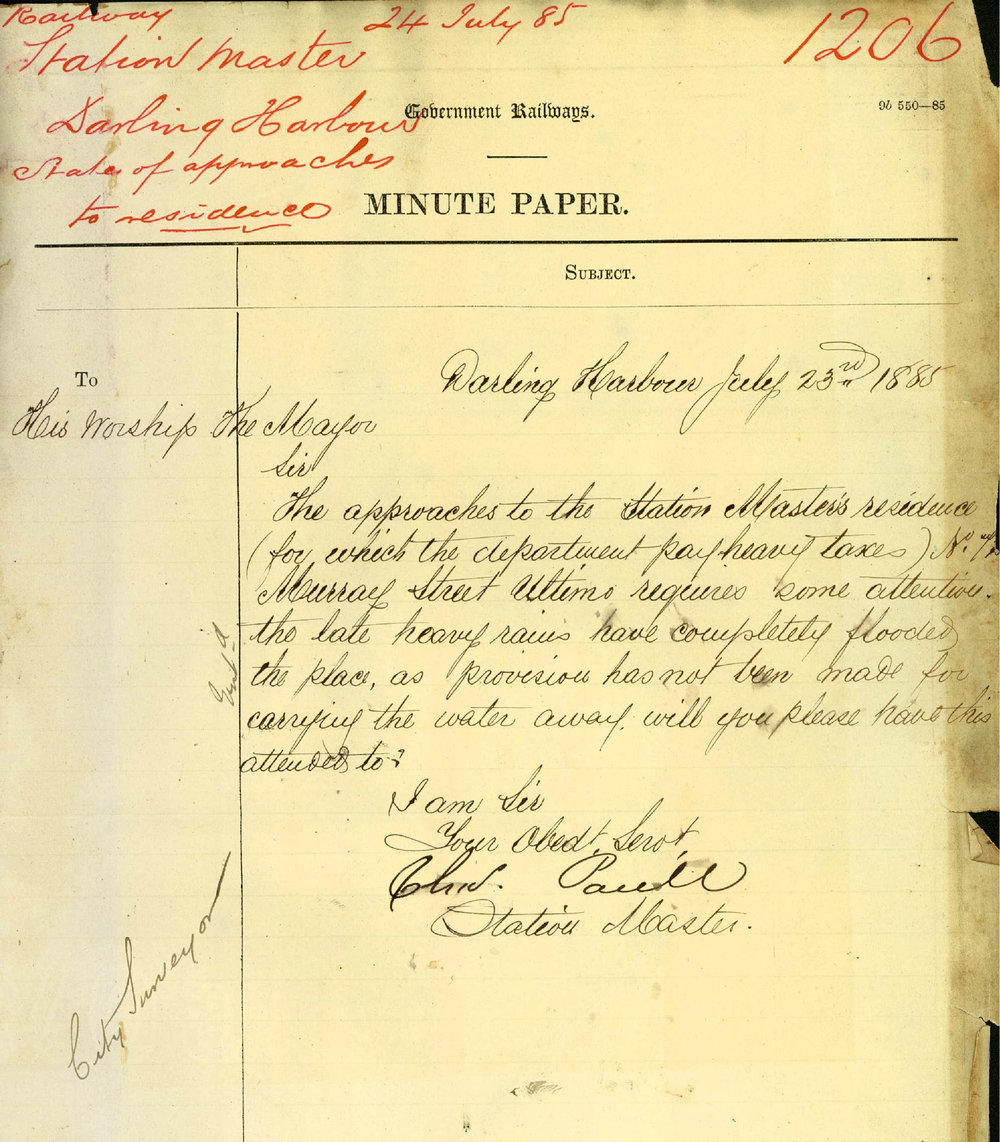 Railway
24 July 85
1206
Station Master
Darling Harbour
State of approaches
to residence
Government Railways.
9b 550—85
MINUTE PAPER.
SUBJECT.
To
Darling Harbour July 23rd 1885
His Worship The Mayor
Sir
The approaches to the Station Master's residence
(for which the department pay heavy taxes) No.
Murray Street Ultimo requires some attention.
the late heavy rains have completely flooded
the place, as provision has not been made for
carrying the water away. will you please have this
attended to?
I am Sir
Your Obedt. Servt
Station Master.
City Surveyor